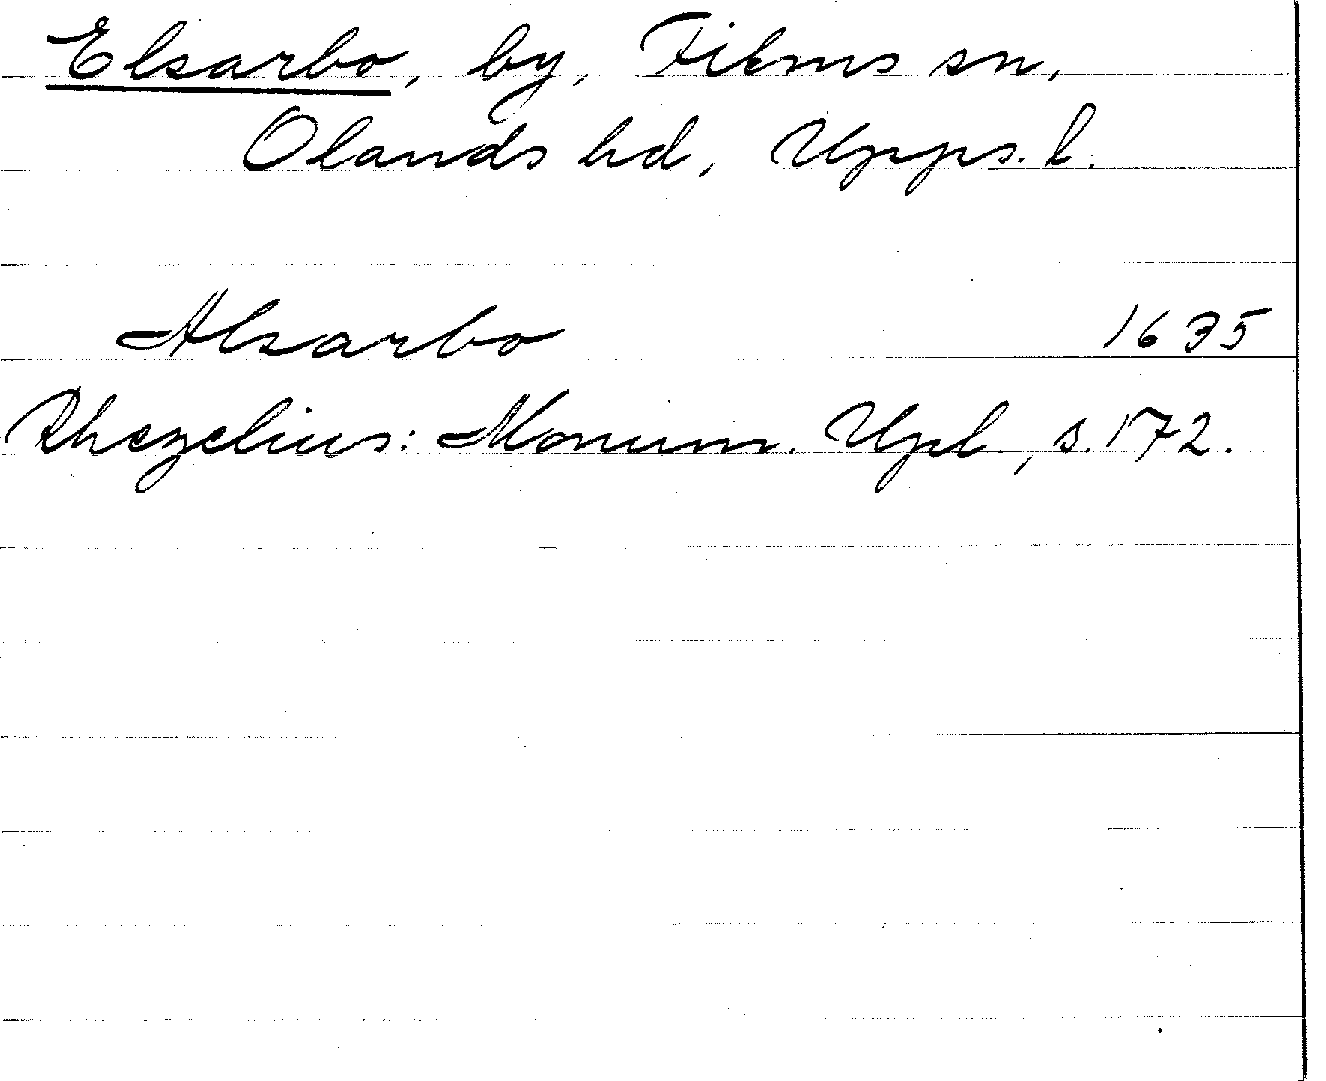 Elsarbo, by, Films sn,
Olands hd, Upps. l.
Alsarbo 1635
Rhezelius: Monum. Upl, s. 172.